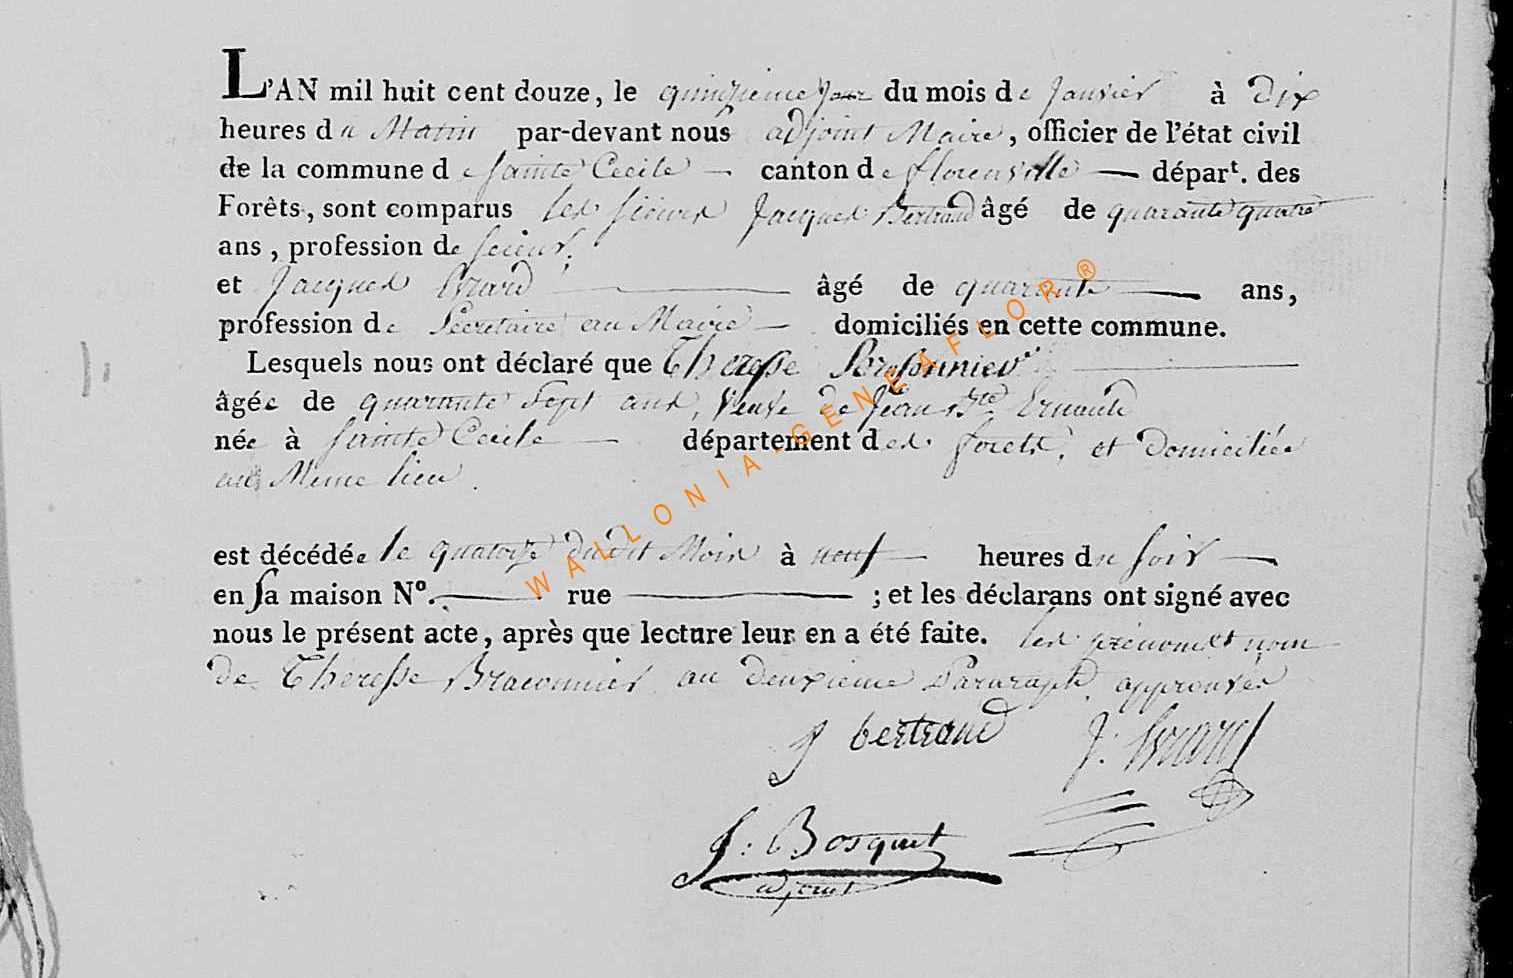 L'AN mil huit cent douze, le quinzieme jour du mois de Janvier à dix
heures du Matin par-devant nous adjoint Maire, officier de l'état civil
de la commune de Sainte Cecile canton de florenville départ. des
Forêts, sont comparus les sieurs Jacques Bertrand âgé de quarante quatre
ans, profession de scieur,
et Jacques Evrard âgé de quarante ans,
profession de Secretaire au Maire domiciliés en cette commune.
Lesquels nous ont déclaré que Theresse
âgée de quarante Sept ans, Veuve de Jean Bte
née à Sainte Cecile département des forets, et domiciliée
au Meme lieu.
est décédée le quatorze dudit Mois à neuf heures du soir
en sa maison N°. rue ; et les déclarans ont signé avec
nous le présent acte, après que lecture leur en a été faite. les prénom et nom
de Theresse Braconnier au deuxieme Pararaphe approuvés
J bertrand J. Evrard
J. Bosquet
adjoint
WALLONIA-GENEAFLOR®